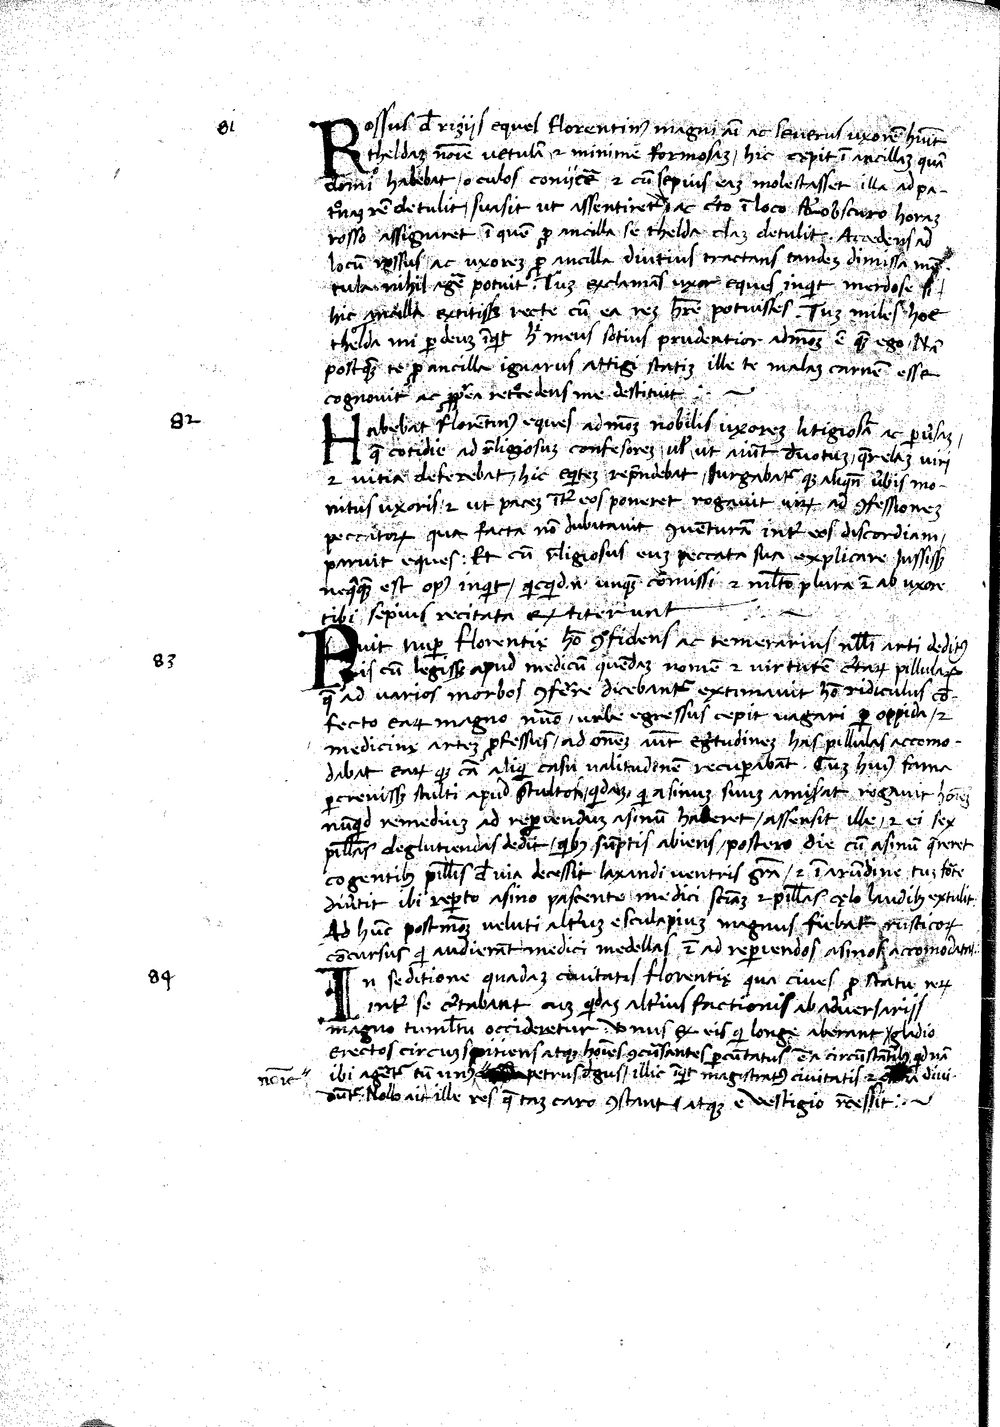 81
Rossus d̄ rizijs eques florentin9 magni aī ac seuerus uxorē hūit
theldaȝ nōie uetulā ⁊ minime formosaȝ / hic cepit ī ancillaȝ quā
domi habebat / oculos conijcē ⁊ cū sepius eaȝ molestasset illa ad pa-
t'naȝ rē detulit / suasit ut assentiret' / ac c'to ī loco obscuro horaȝ
rosso assignaret ī quē p̱ ancilla se thelda claȝ detulit. Accedens ad
locū rossus ac uxoreȝ p̱ ancilla diutius tractans tandeȝ dimissa mē-
tula nihil agē potuit. Tuȝ exclamās uxor eques inq̄t merdose si
hic ancilla extitisset recte cū ea reȝ h̄re potuisses. Tuȝ miles hoc
thelda mi p̱ deuȝ īq̄t h' meus sotius prudentior admoȝ ē q̄ȝ ego. Nā
postq̄ȝ te p̱ ancilla ignarus attigi statiȝ ille te malaȝ carnē esse
cognouit ac p̱p̱ea ret'cedens me destituit :~
82
Habebat florentin9 eques admoȝ nobilis uxoreȝ litigiosā ac p̱u'saȝ,
q̄ cotidie ad r'ligiosuȝ confesoreȝ, ul' ut aiūt deuotuȝ, q̄relaȝ uiri
⁊ uitia deferebat, hic eq̄teȝ rep̄ndebat, Iurgabat' qȝ aliqn̄ u'bis mo-
nitus uxoris ⁊ ut paceȝ īt' eos poneret rogauit uiȝ ad 9fessioneȝ
peccatoꝝ qua facta nō dubitauit 9uenturā int' eos discordiam,
paruit eques. Et cū r'ligiosus euȝ peccata sua explicare Iussisset
neq̄q̄ȝ est op9 inq̄t, q̄cq̄d n̄ unq̄ȝ cōmissi ⁊ mlto plura ī ab uxore
tibi sepius recitata extiterunt ~
83
Fuit nup̱ florentię hō 9fidens ac temerarius nlli arti dedit9
is cū legisset apud medicū quēdaȝ nomē ⁊ uirtutē c'taꝝ pillulaꝝ
q̄ ad uarios morbos 9fer're dicebant' extimauit hō ridiculus cō-
fecto eaꝝ magno nūo, urbe egressus cepit uagari p̱ oppida, ⁊
medicinę arteȝ p̱fessus, ad oneȝ aūt egritudineȝ has pillulas accomo-
dabat eaꝝ qȝ cā aliq̄ casu ualitudinē recup̱abāt. Cuȝ hui9 fama
p̱creuisset stulti apud stultos, q̄daȝ, q̄ asinuȝ suuȝ amiserat rogauit hoīeȝ
nūq̄d remediuȝ ad rep̱iendum asinū haberet, assensit ille, ⁊ ei sex
pillas deglutiendas dedit, q̄b9 sūptis abiens, postero die cū asinū q̄reret
cogentib9 pillis d̄ uia decessit laxandi uentris grā, ⁊ ī arūdine, tuȝ forte
diu'tit ibi rep̱to asino pascente medici sciāȝ ⁊ pillas cęlo laudib9 extulit
Ad hūc postmoȝ ueluti alt'uȝ esculapiuȝ magnus fiebat rusticoꝝ
cōcursus q̄ audierāt medici medellas ī ad rep̱iendos asinos accomodatas.
84
In seditione quadaȝ ciuitatis florentię qua ciues p̱ statu reꝝ
int' se c'tabant cuȝ q̄daȝ alt'ius factionis ab adu'sarijs
magno tumltu occideretur. Unus ex eis q̄ longe aberant gladio
erectos circuȝspitiens atqȝ hoīes 9cursantes p̱cūtatus ē a circūstātib9 q̄dnā
nōie ibi agēt' tū un9 petrus d'gus, illic īq̄t magistrat9 ciuitatis ⁊ diui-
dunt'. Nolo ait ille res q̄ taȝ caro 9stant, atqȝ e uestigio r'cessit :~